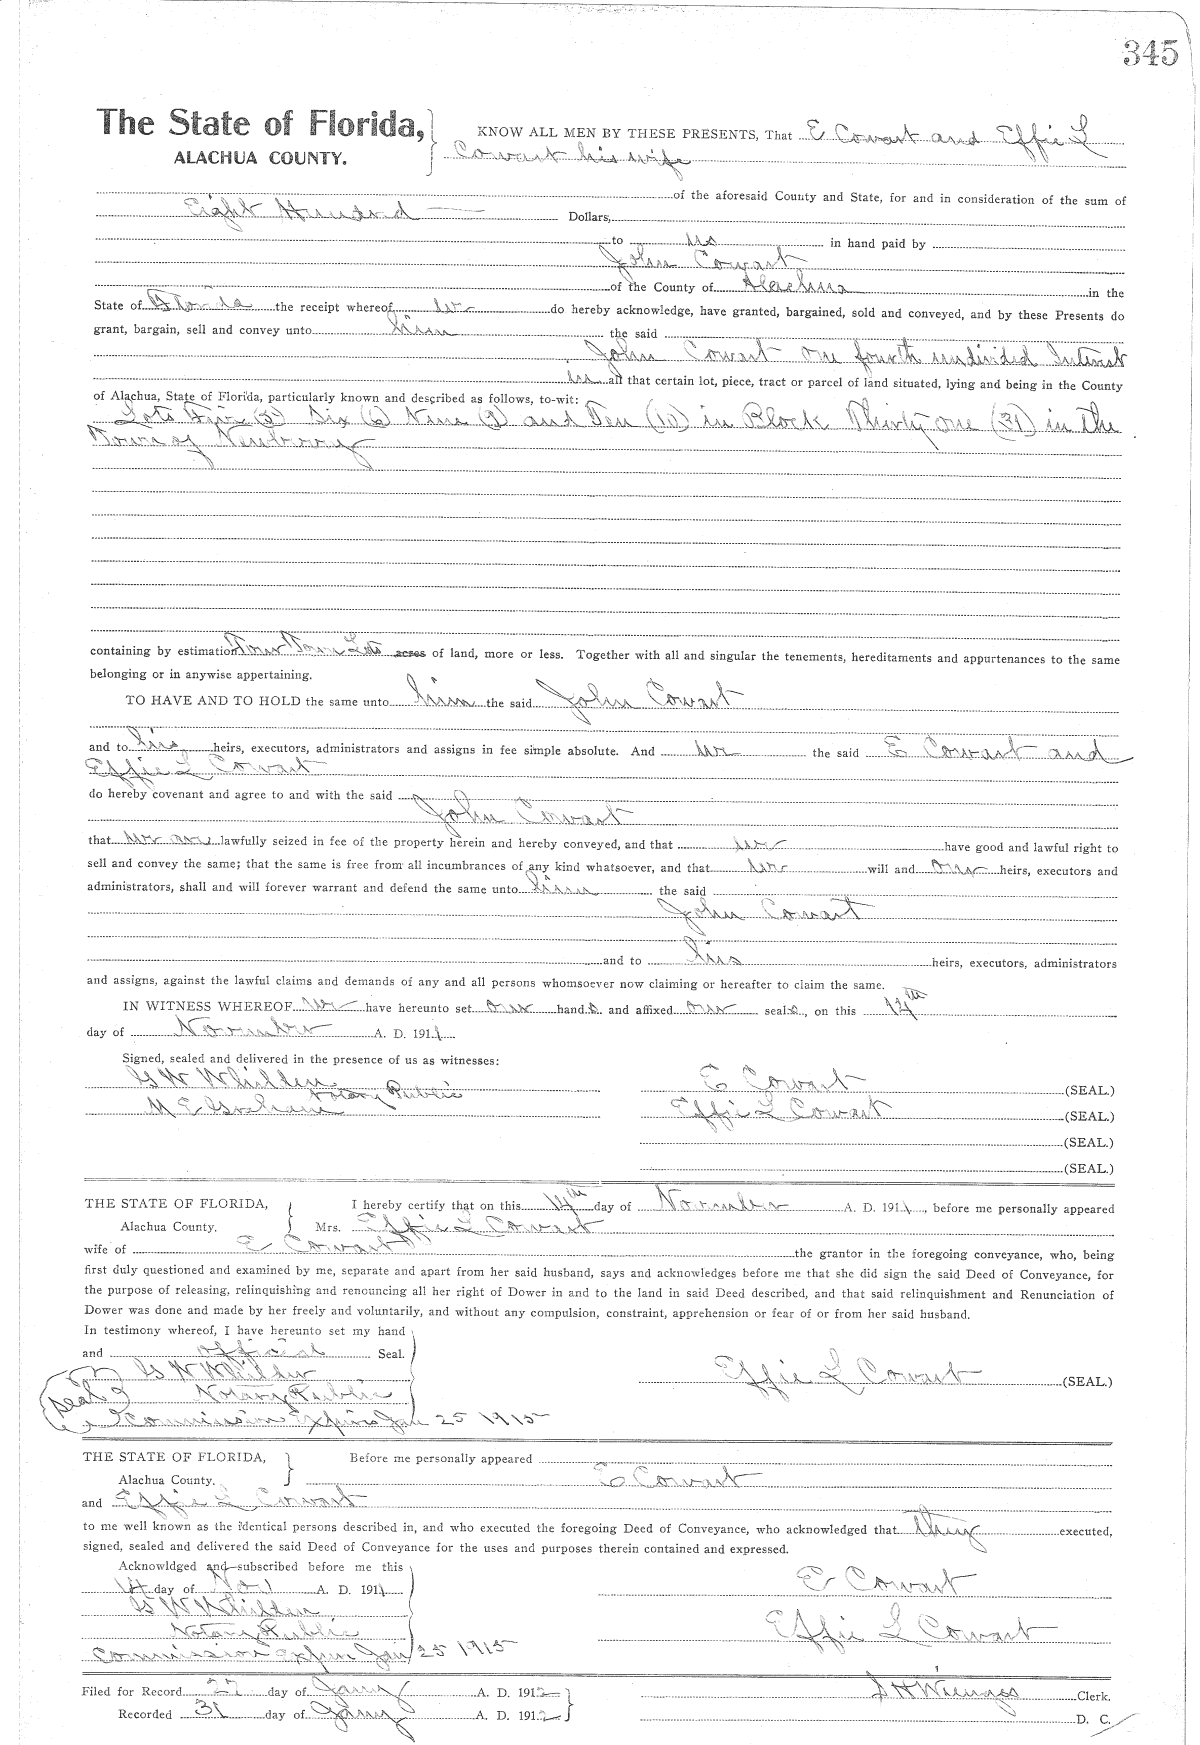 345
The State of Florida, KNOW ALL MEN BY THESE PRESENTS, That E Cowart and Effie L
ALACHUA COUNTY. Cowart his wife
of the aforesaid County and State, for and in consideration of the sum of
Eight Hundred Dollars,
to us in hand paid by
John Cowart
of the County of Alachua in the
State of Florida the receipt whereof we do hereby acknowledge, have granted, bargained, sold and conveyed, and by these Presents do
grant, bargain, sell and convey unto him the said
John Cowart one fourth undivided Interest
in all that certain lot, piece, tract or parcel of land situated, lying and being in the County
of Alachua, State of Florida, particularly known and described as follows, to-wit:
Lots Five (5) Six (6) Nine (9) and Ten (10) in Block Thirty one (31) in the
Town of Newberry
containing by estimation Four Town Lots acres of land, more or less. Together with all and singular the tenements, hereditaments and appurtenances to the same
belonging or in anywise appertaining.
TO HAVE AND TO HOLD the same unto him the said John Cowart
and to his heirs, executors, administrators and assigns in fee simple absolute. And we the said E Cowart and
Effie L Cowart
do hereby covenant and agree to and with the said
John Cowart
that we are lawfully seized in fee of the property herein and hereby conveyed, and that we have good and lawful right to
sell and convey the same; that the same is free from all incumbrances of any kind whatsoever, and that we will and our heirs, executors and
administrators, shall and will forever warrant and defend the same unto him the said
John Cowart
and to his heirs, executors, administrators
and assigns, against the lawful claims and demands of any and all persons whomsoever now claiming or hereafter to claim the same.
IN WITNESS WHEREOF we have hereunto set our hands and affixed our seals, on this 14th
day of November A. D. 1911
Signed, sealed and delivered in the presence of us as witnesses:
G W Whilden Notary Public E Cowart (SEAL.)
M E Graham Effie L Cowart (SEAL.)
(SEAL.)
(SEAL.)
THE STATE OF FLORIDA, I hereby certify that on this 14th day of November A. D. 1911, before me personally appeared
Alachua County. Mrs. Effie L Cowart
wife of E Cowart the grantor in the foregoing conveyance, who, being
first duly questioned and examined by me, separate and apart from her said husband, says and acknowledges before me that she did sign the said Deed of Conveyance, for
the purpose of releasing, relinquishing and renouncing all her right of Dower in and to the land in said Deed described, and that said relinquishment and Renunciation of
Dower was done and made by her freely and voluntarily, and without any compulsion, constraint, apprehension or fear of or from her said husband.
In testimony whereof, I have hereunto set my hand
and official Seal.
G W Whilden Effie L Cowart (SEAL.)
seal Notary Public
Commission Expires Jan 25 1915
THE STATE OF FLORIDA, Before me personally appeared
Alachua County. E Cowart
and Effie L Cowart
to me well known as the identical persons described in, and who executed the foregoing Deed of Conveyance, who acknowledged that they executed,
signed, sealed and delivered the said Deed of Conveyance for the uses and purposes therein contained and expressed.
Acknowldged and subscribed before me this
14 day of Nov A. D. 1911 E Cowart
G W Whilden
Notary Public Effie L Cowart
Commission Expires Jan 25 1915
Filed for Record 27 day of Jany A. D. 1912 S H Wienges Clerk.
Recorded 31 day of Jany A. D. 1912 D. C.